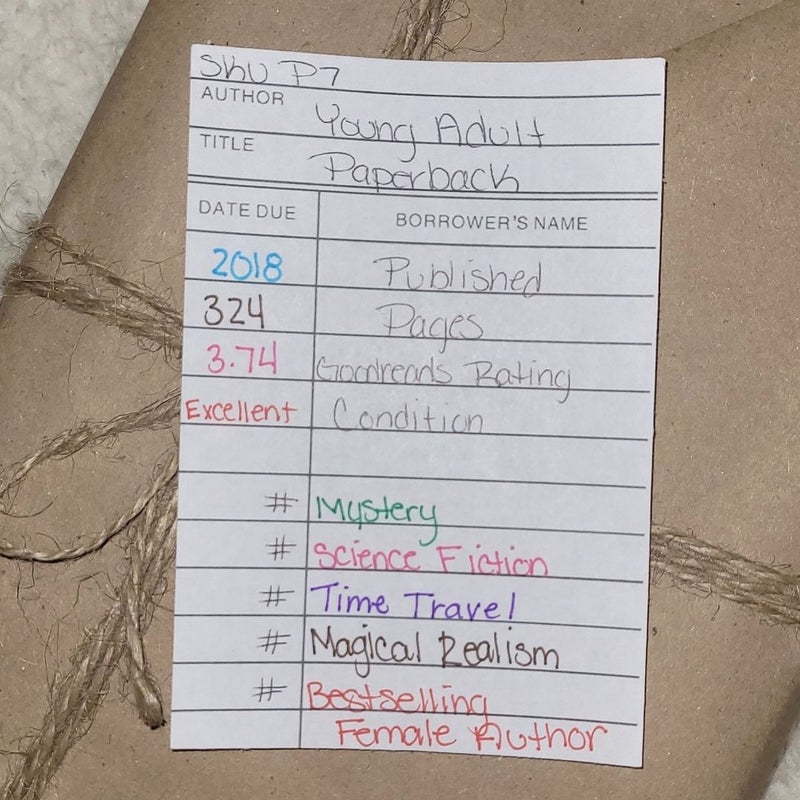 SKU P7
AUTHOR Young Adult
TITLE Paperback
DATE DUE BORROWER'S NAME
2018 Published
324 Pages
3.74 Goodreads Rating
Excellent Condition
# Mystery
# Science Fiction
# Time Travel
# Magical Realism
# Bestselling
Female Author